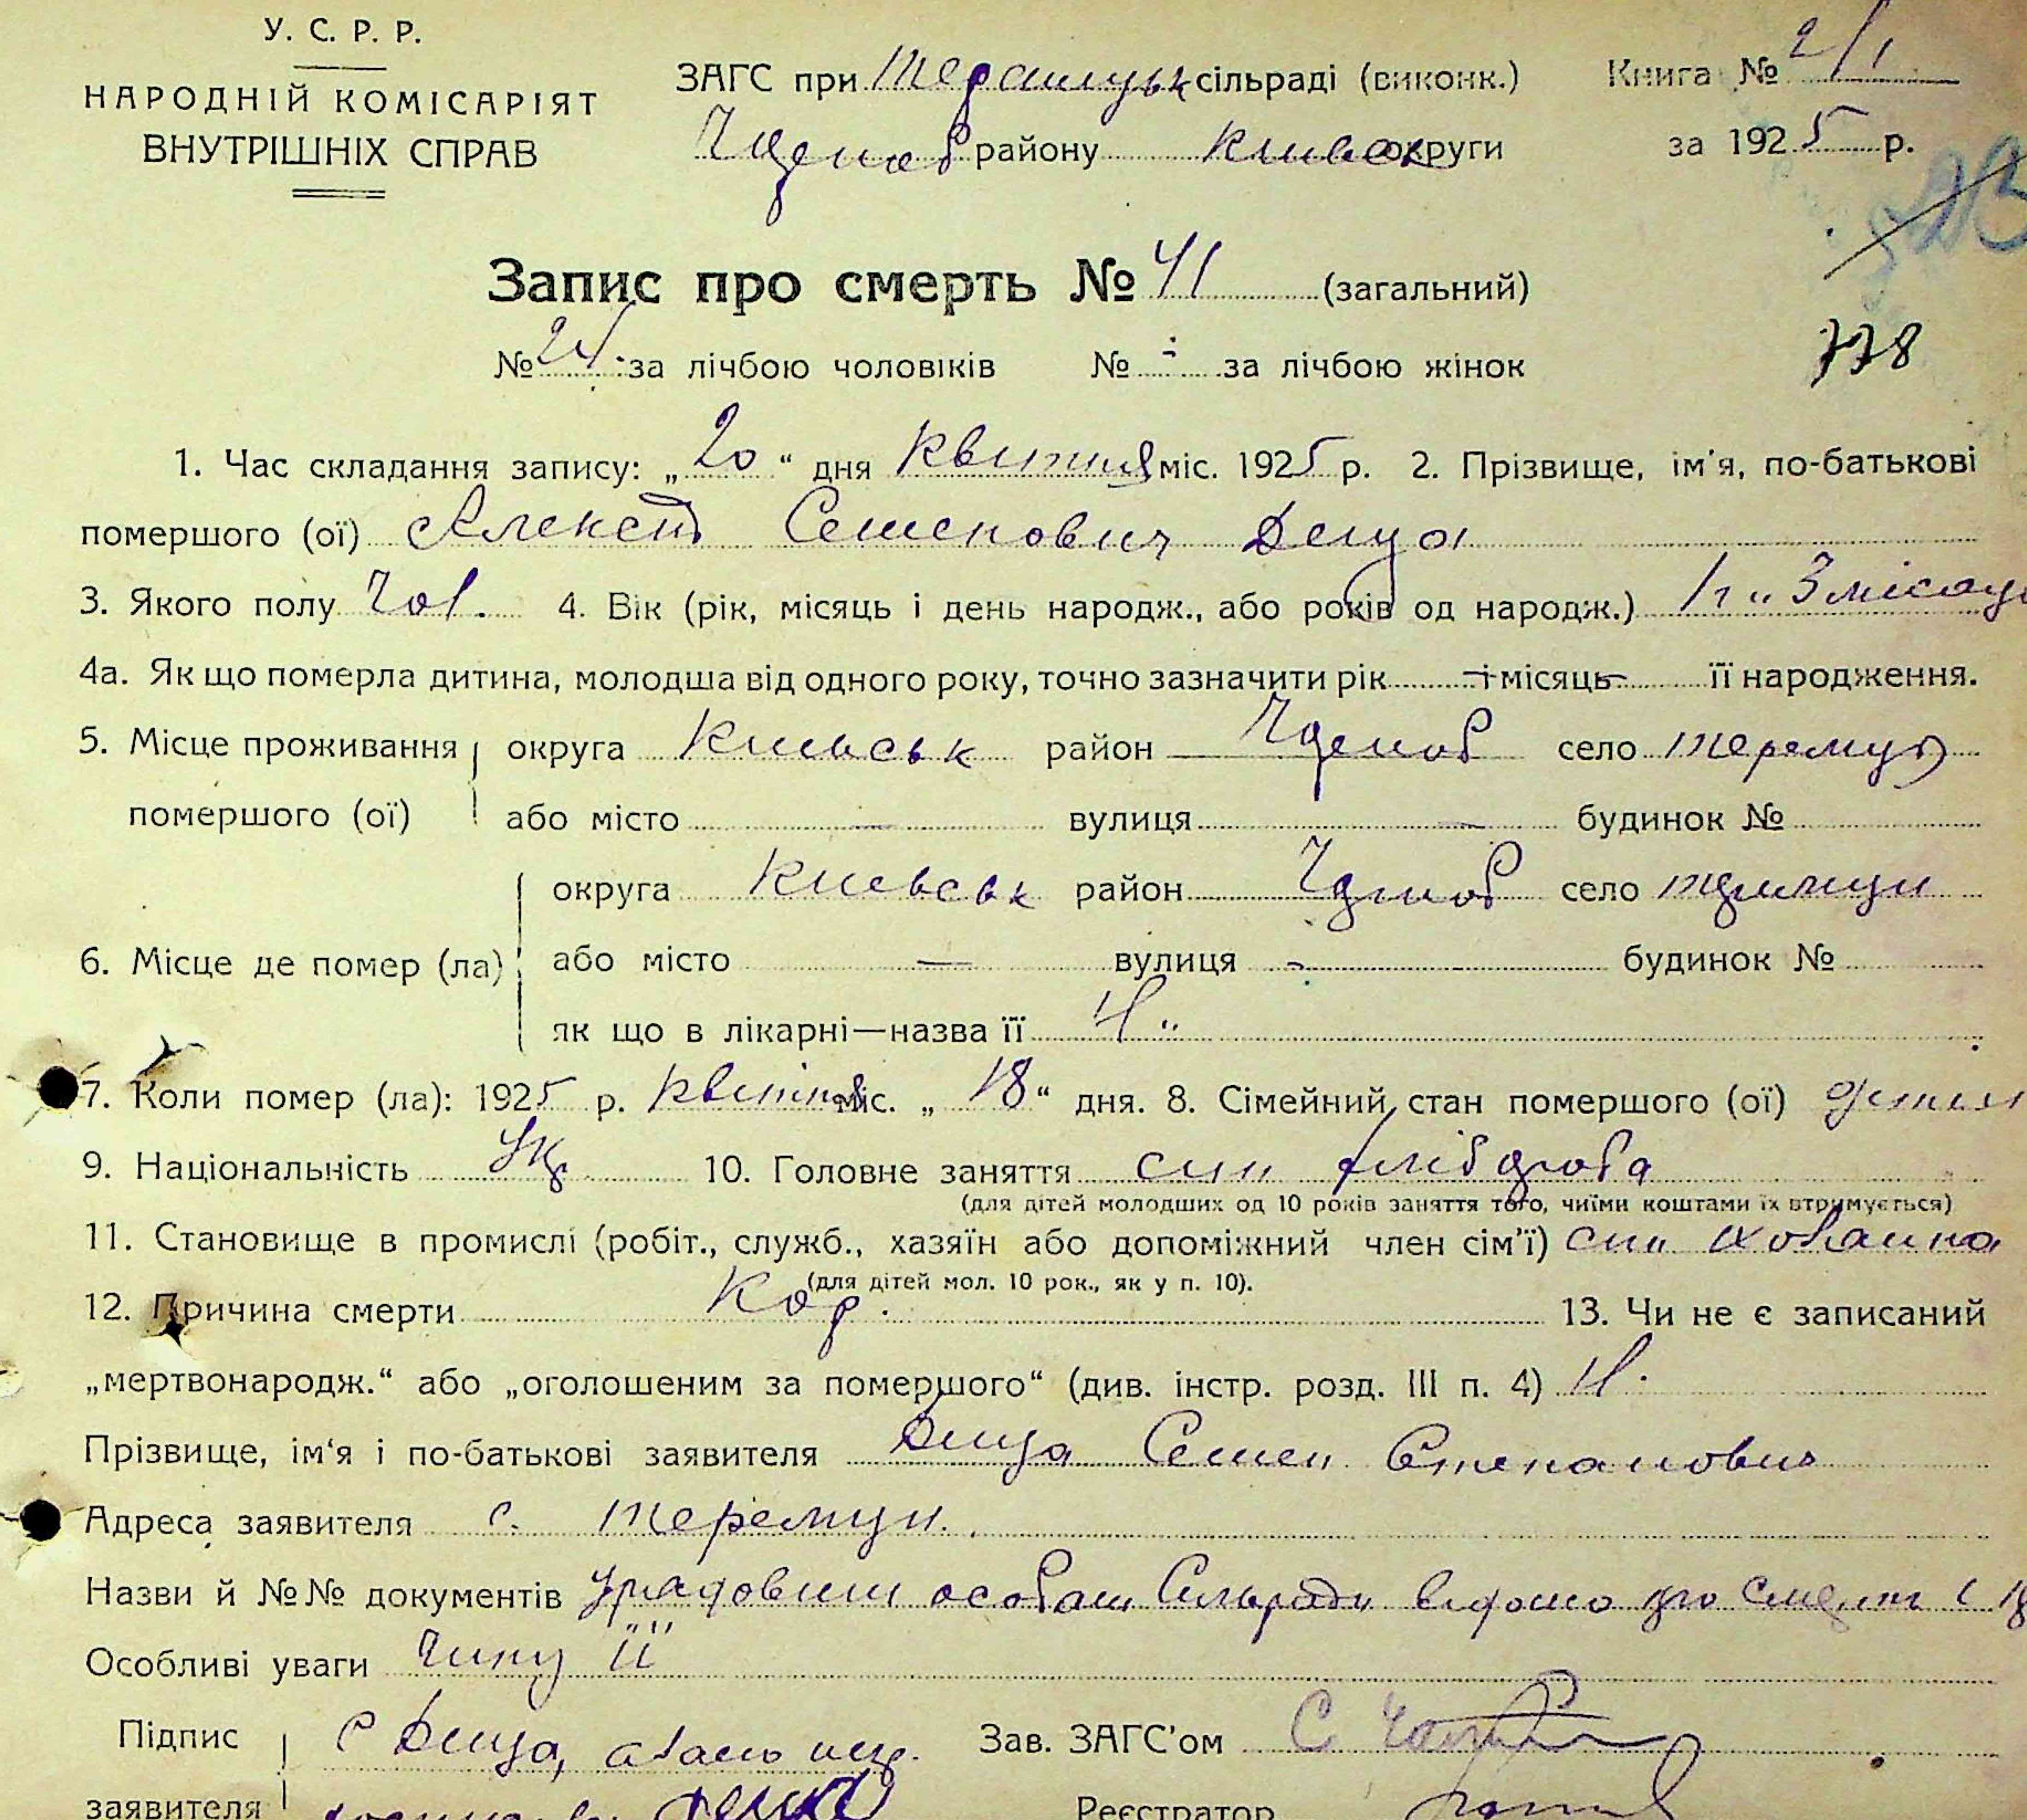 У. С. Р. Р.
НАРОДНІЙ КОМІСАРІЯТ
ВНУТРІШНІХ СПРАВ
ЗАГС при сільраді (виконк.)
району Киівськ округи
Книга № 2/1
за 1925 р.
Запис про смерть № 41 (загальний)
№ 24 за лічбою чоловіків № - за лічбою жінок
778
1. Час складання запису: „20“ дня Квітня міс. 1925 р. 2. Прізвище, ім'я, по-батькові
помершого (ої) Алексій Семенович Деща
3. Якого полу Чол. 4. Вік (рік, місяць і день народж., або років од народж.) 1 г. 3 місяц
4а. Як що померла дитина, молодша від одного року, точно зазначити рік — і місяць — її народження.
5. Місце проживання округа Киівськ район село Теремці
помершого (ої) або місто — вулиця — будинок №
округа Киевськ район село Теремци
6. Місце де помер (ла) або місто — вулиця - будинок №
як що в лікарні—назва її Н.
7. Коли помер (ла): 1925 р. Квітня міс. „18“ дня. 8. Сімейний стан помершого (ої)
9. Національність Укр 10. Головне заняття син хлібороба
(для дітей молодших од 10 років заняття того, чиїми коштами їх втримується)
11. Становище в промислі (робіт., служб., хазяїн або допоміжний член сім'ї) син
(для дітей мол. 10 рок., як у п. 10).
12. Причина смерти Кор. 13. Чи не є записаний
„мертвонародж.“ або „оголошеним за помершого“ (див. інстр. розд. III п. 4) Н.
Прізвище, ім'я і по-батькові заявителя Деща Семен Степанович
Адреса заявителя с. Теремци.
Назви й №№ документів Урядовим особам Сільради відомо про смерть
Особливі уваги Чину ІІ
Підпис С Деща,
Зав. ЗАГС'ом С.
заявителя
Реєстратор